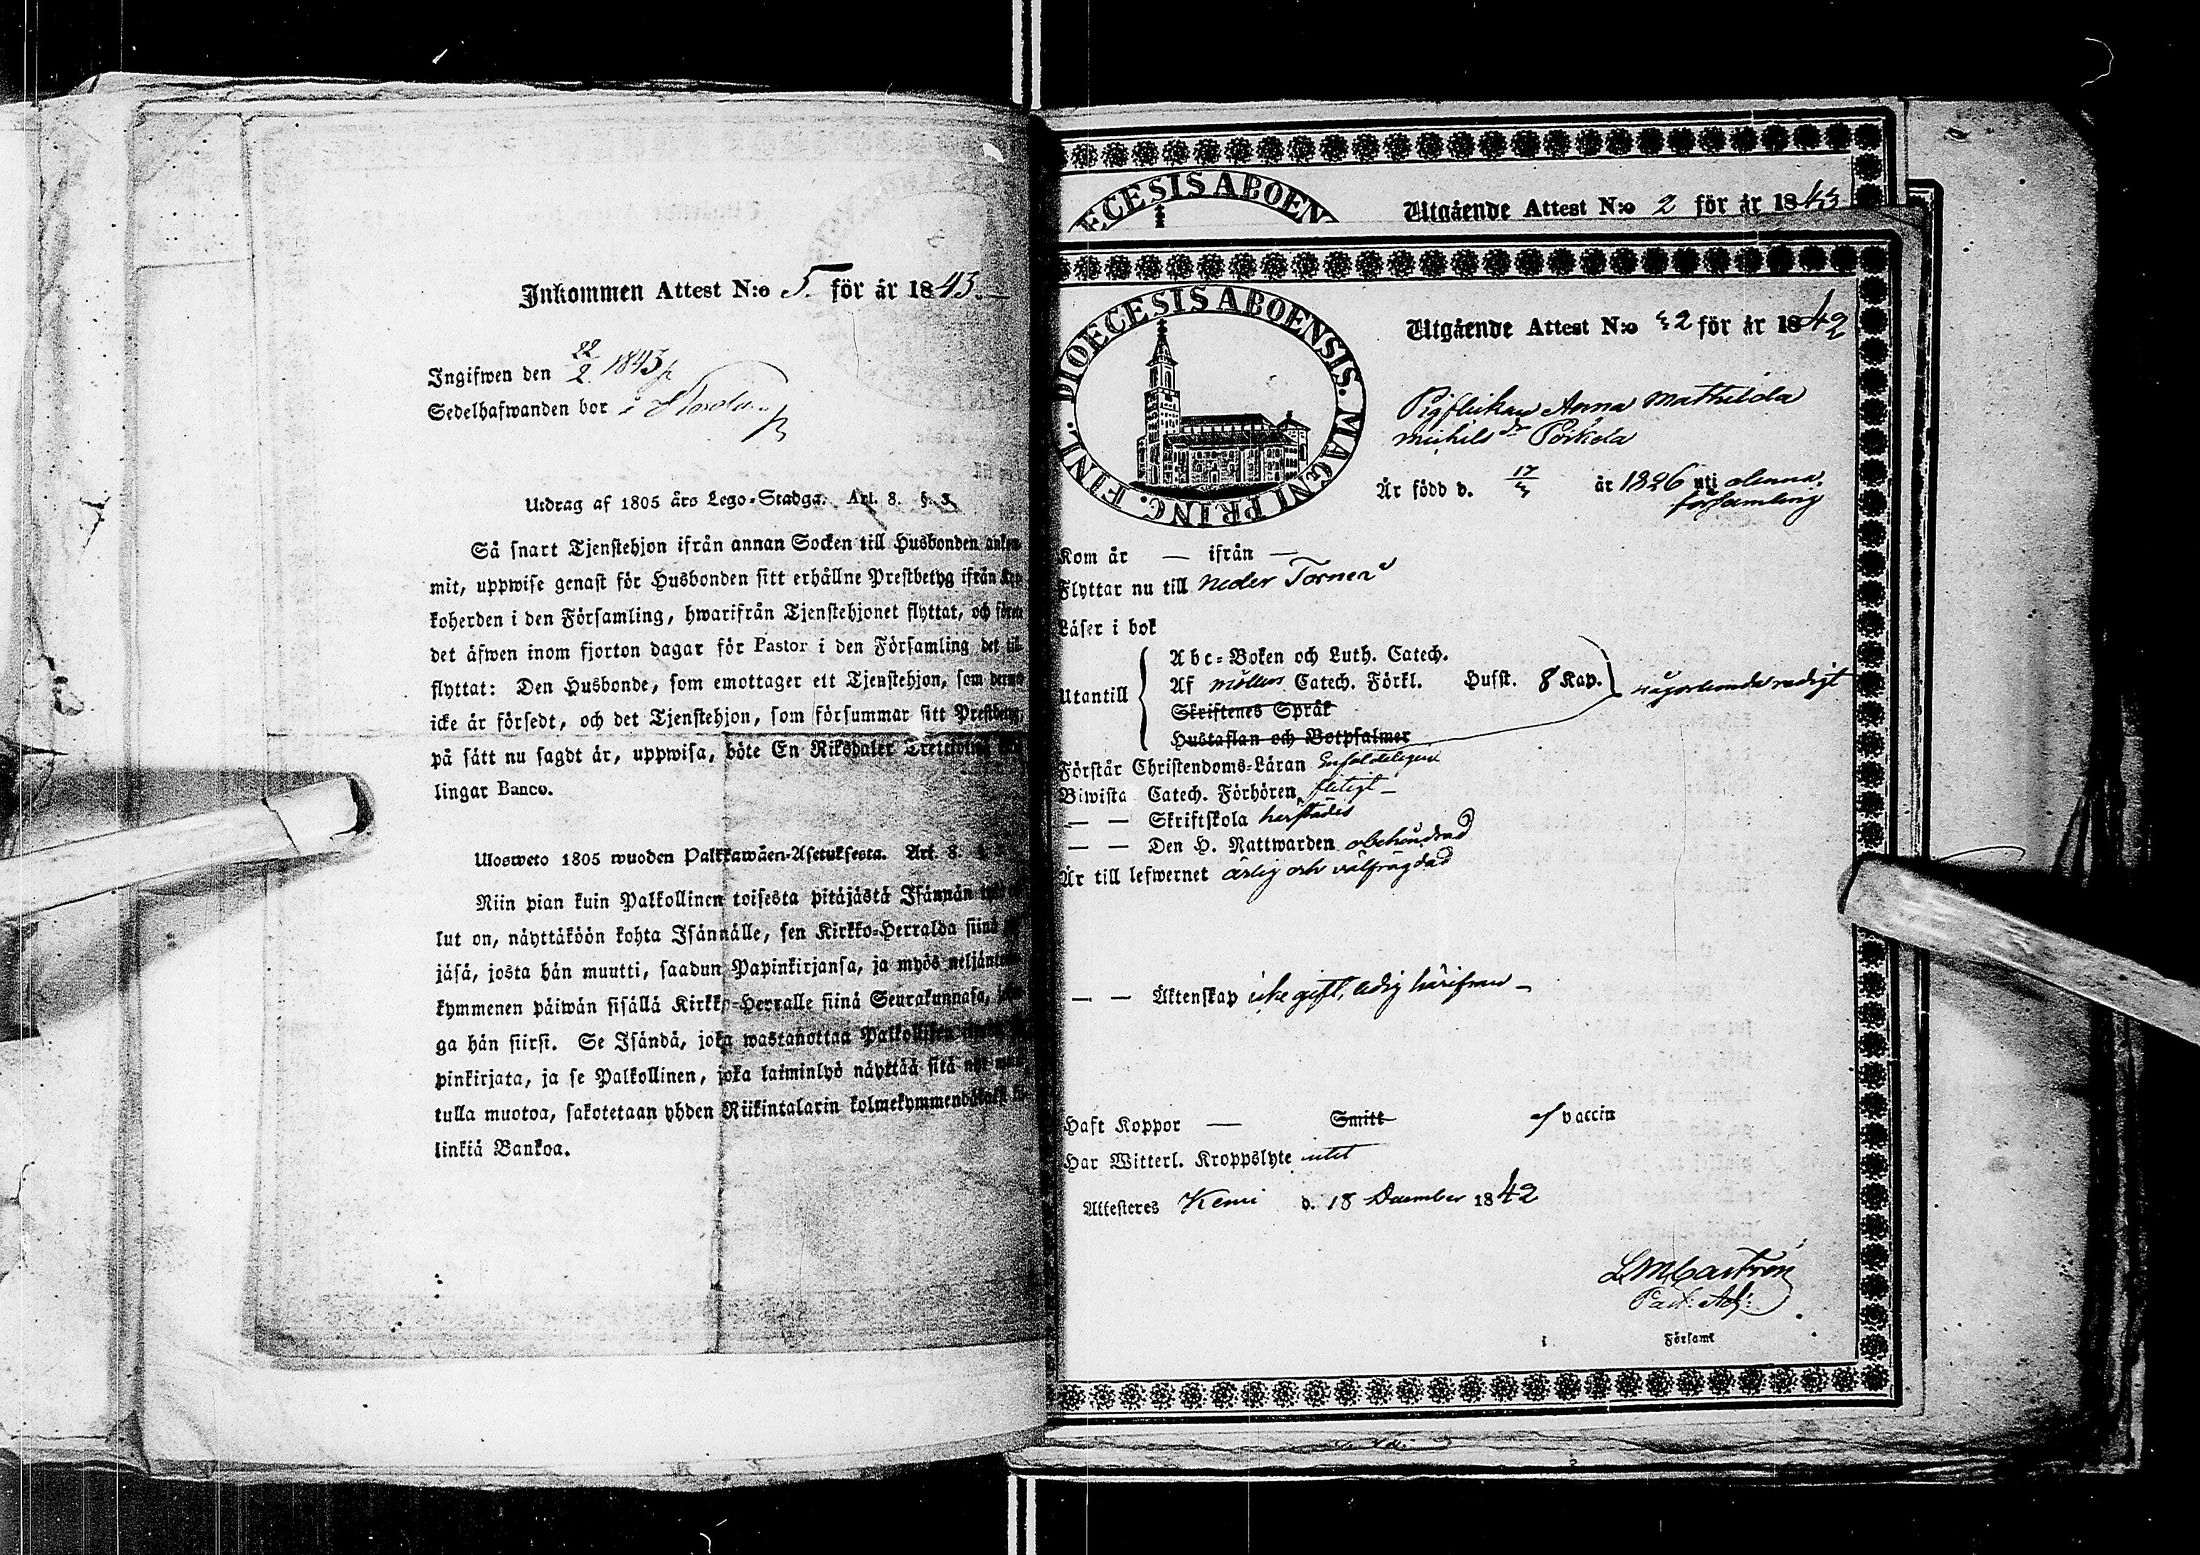 Inkommen Attest N:o 5. för år 1843.
Ingifwen den 22/2 1843
Sedelhafwanden bor i
Utdrag af 1805 års Lego-Stadga. Art. 8. §. 3.
Så snart Tjenstehjon ifrån annan Socken till Husbonden
mit, uppwise genast för Husbonden sitt erhållne Prestbetyg ifrån
koherden i den Församling, hwarifrån Tjenstehjonet flyttat, och
det äfwen inom fjorton dagar för Pastor i den Församling det
flyttat: Den Husbonde, som emottager ett Tjenstehjon, som
icke är försedt, och det Tjenstehjon, som försummar sitt
på sätt nu sagdt är, uppwisa, böte En Riksdaler
lingar Banco.
Ulosweto 1805 wuoden Palkkawäen-Asetuksesta. Art. 8.
Niin pian kuin Palkollinen toisesta pitäjästä Isännän
lut on, näyttäköön kohta Isännälle, sen Kirkko-Herralda siinä
jäsä, josta hän muutti, saadun Papinkirjansa, ja myös
kymmenen päiwän sisällä Kirkko-Herralle siinä Seurakunnasa,
ga hän siirsi. Se Isändä, joka wastanottaa Palkollisen
pinkirjata, ja se Palkollinen, joka laiminlyö näyttää sitä nyt
tulla muotoa, sakotetaan yhden Riikintalarin
linkiä Bankoa.
ECESIS ABOEN
Utgående Attest N:o 2 för år 1843
DIOECESIS ABOENSIS. MAGNI PRINC. FINL.
Utgående Attest N:o 32 för år 1842
Pigflickan Anna Mathilda
Michels dr Pörkola
Är född d. 17/3 år 1826 uti denna
församling
Kom år — ifrån —
Flyttar nu till Neder Torneå
Läser i bok
Utantill
Abc-Boken och Luth. Catech.
Af Möllers Catech. Förkl. Husst. 8 Kap. någorlunda redigt
Skriftenes Språk
Hustaflan och Botpsalmer
Förstår Christendoms-Läran Enfaldeligen
Biwista Catech. Förhören flitigt —
— — Skriftskola herstädes
— — Den H. Nattwarden obehindrad
Är till lefwernet ärlig och välfrägdad
— — Äktenskap icke gift, ledig härifrån —
Haft Koppor — Smitt af vaccin
Har Witterl. Kroppslyte intet
Attesteres Kemi d. 18 December 1842
L M Castrén
Past: Adj:
i Församl